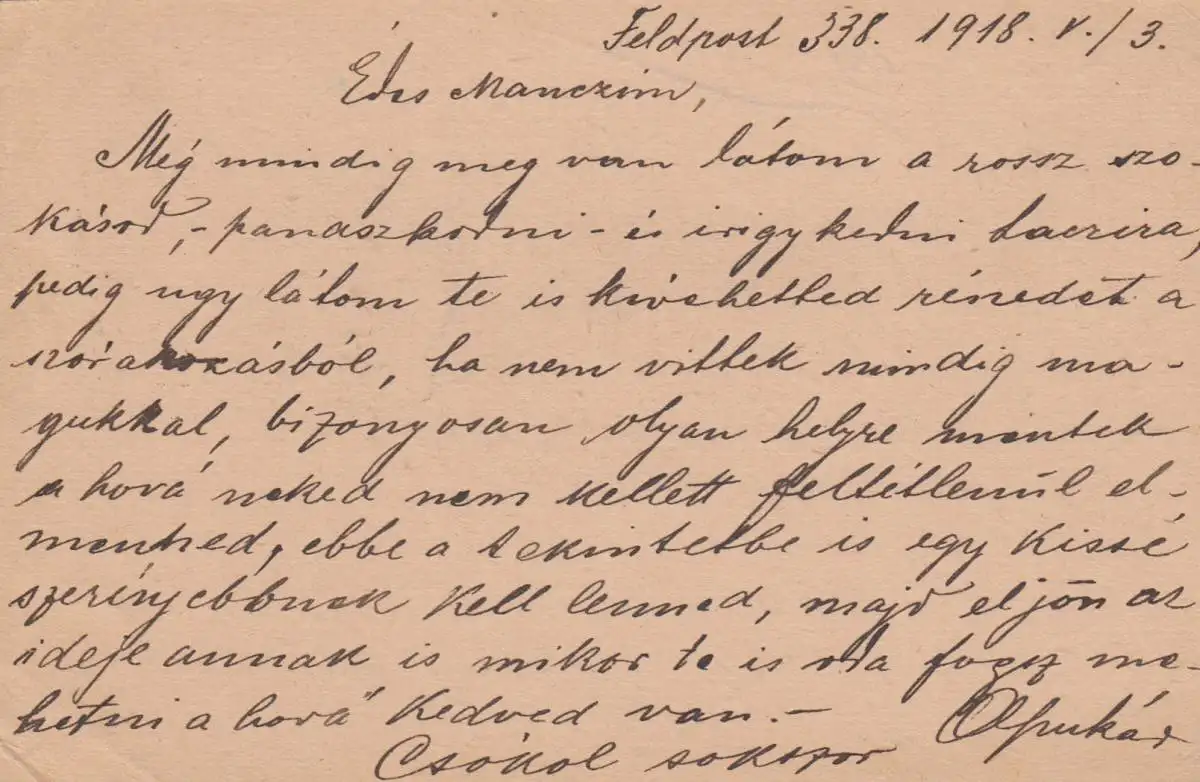 Feldpost 338. 1918. V./3.
Édes Manczim,
Még mindig meg van látom a rossz szo-
kásod, - panaszkodni - és irigykedni Laczira,
pedig ugy látom te is kivehetted részedet a
szórakozásból, ha nem vittek mindig ma-
gukkal, bizonyosan olyan helyre mentek
a hová neked nem kellett feltétlenül el-
menned, ebbe a tekintetbe is egy kissé
szerényebbnek kell lenned, majd eljön az
ideje annak is mikor te is oda fogsz me-
hetni a hová kedved van.-
Csókol sokszor Apukád